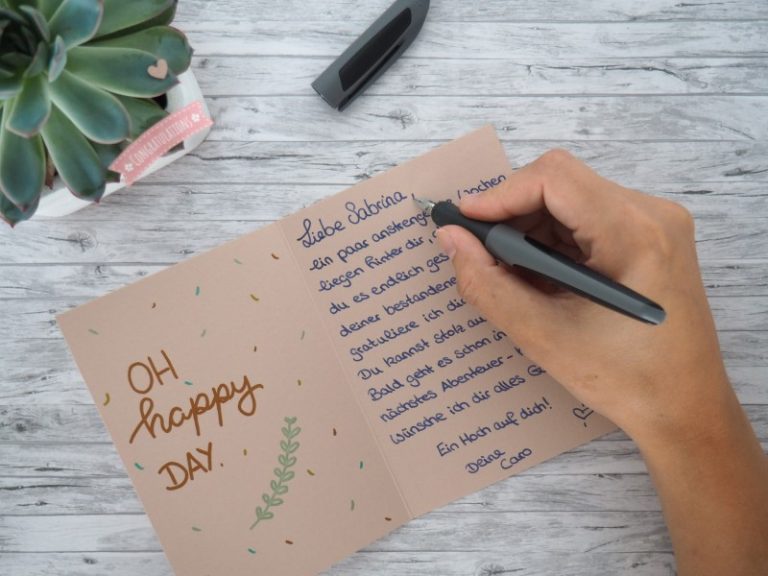 CONGRATULATIONS
OH
happy
DAY.
Liebe Sabrina,
ein paar
liegen hinter dir,
du es endlich
deiner bestandene
gratuliere ich dir
Du kannst stolz
Bald geht es schon in
nächstes Abenteuer -
wünsche ich dir alles
Ein Hoch auf dich!
Deine
Caro